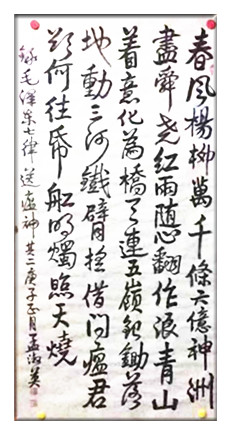 春风楊柳萬千條六億神洲
盡舜尧紅雨随心翻作浪青山
着意化為橋天連五嶺銀鋤落
地動三河鐵臂摇借問瘟君
欲何往帋船明燭照天燒
錄毛澤东七律送瘟神其二庚子正月孟淑英